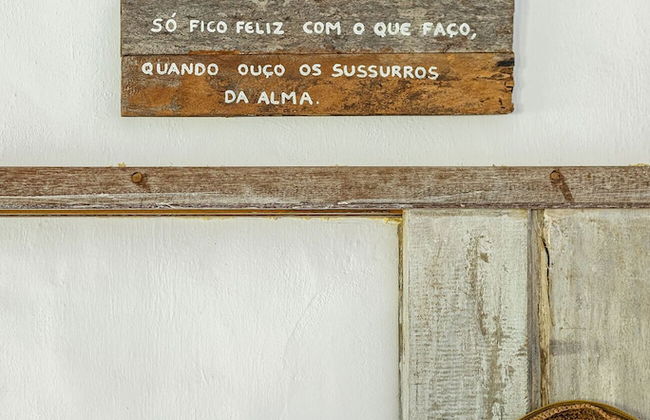 SÓ FICO FELIZ COM O QUE FAÇO,
QUANDO OUÇO OS SUSSURROS
DA ALMA.